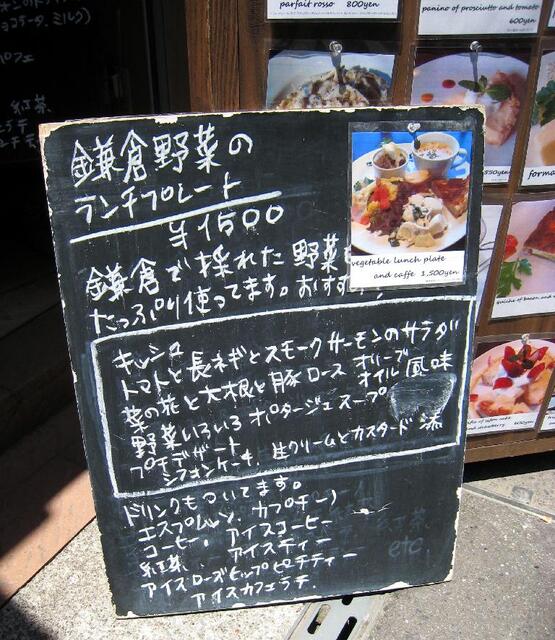 parfait rosso 800yen
panino of prosciutto and tomato
600yen
鎌倉野菜の
ランチプレート
¥1500
鎌倉で採れた野菜
たっぷり使ってます。おすす
vegetable lunch plate
and caffe 1,500yen
キッシュ
トマトと長ネギとスモークサーモンのサラダ
菜の花と大根と豚ロース オリーブオイル風味
野菜いろいろ ポタージュスープ
プチデザート
シフォンケーキ、生クリームとカスタード添
ドリンクもついてます。
エスプレッソ、カプチーノ
コーヒー、アイスコーヒー
紅茶、アイスティー
アイスローズヒップピーチティー
アイスカフェラテ.
紅茶
etc.
850yen
紅茶